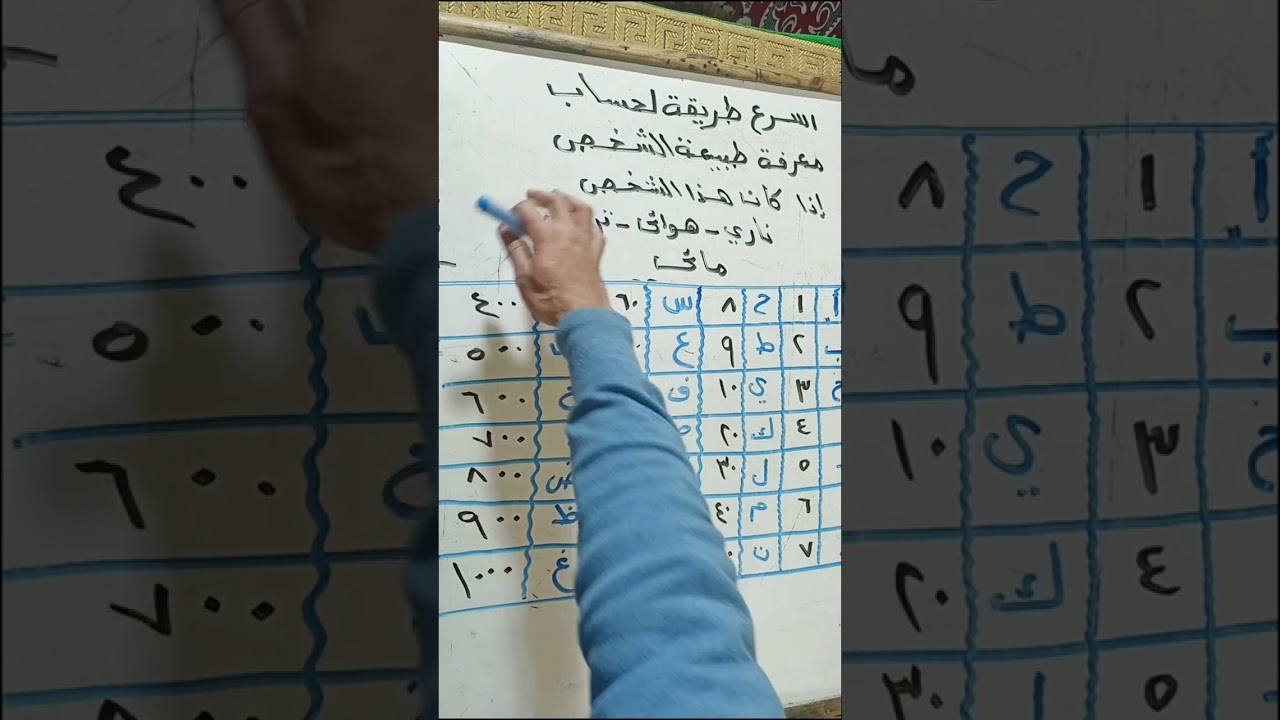 اسرع طريقة لحساب
معرفة طبيعة الشخص
إذا كان هذا الشخص
ناري - هوائى -
مائى
أ ١ ح ٨ س ٦٠ ٤٠٠
ب ٢ ط ٩ ع ٥٠٠
ج ٣ ي ١٠ ف ٦٠٠
٤ ك ٢٠ ٧٠٠
٥ ل ٣٠ ض ٨٠٠
٦ م ٤٠ ظ ٩٠٠
٧ ن غ ١٠٠٠